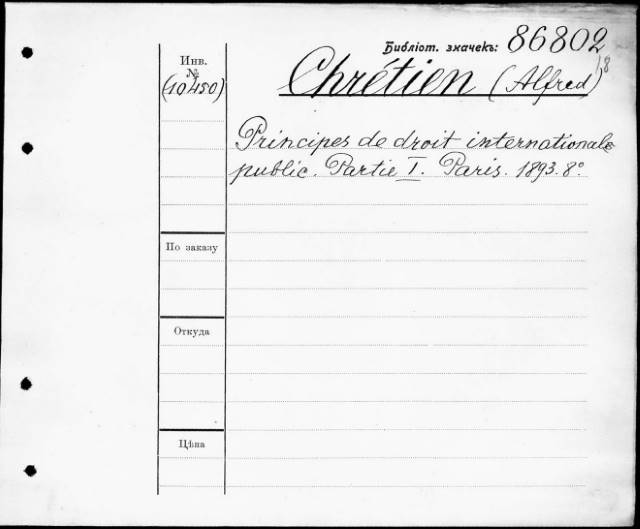 Библіот. значекъ: 86802
18
Инв.
№
(10450)
Chrétien (Alfred)
Principes de droit internationale
public. Partie I. Paris. 1893. 8º
По заказу
Откуда
Цѣна